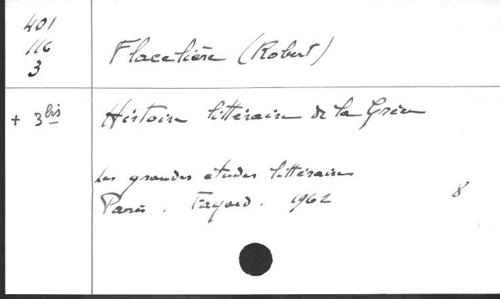 401
116
3
Flacelière (Robert)
+ 3bis
Histoire littéraire de la Grèce
Les grandes études littéraires
Paris. Fayard. 1962
8